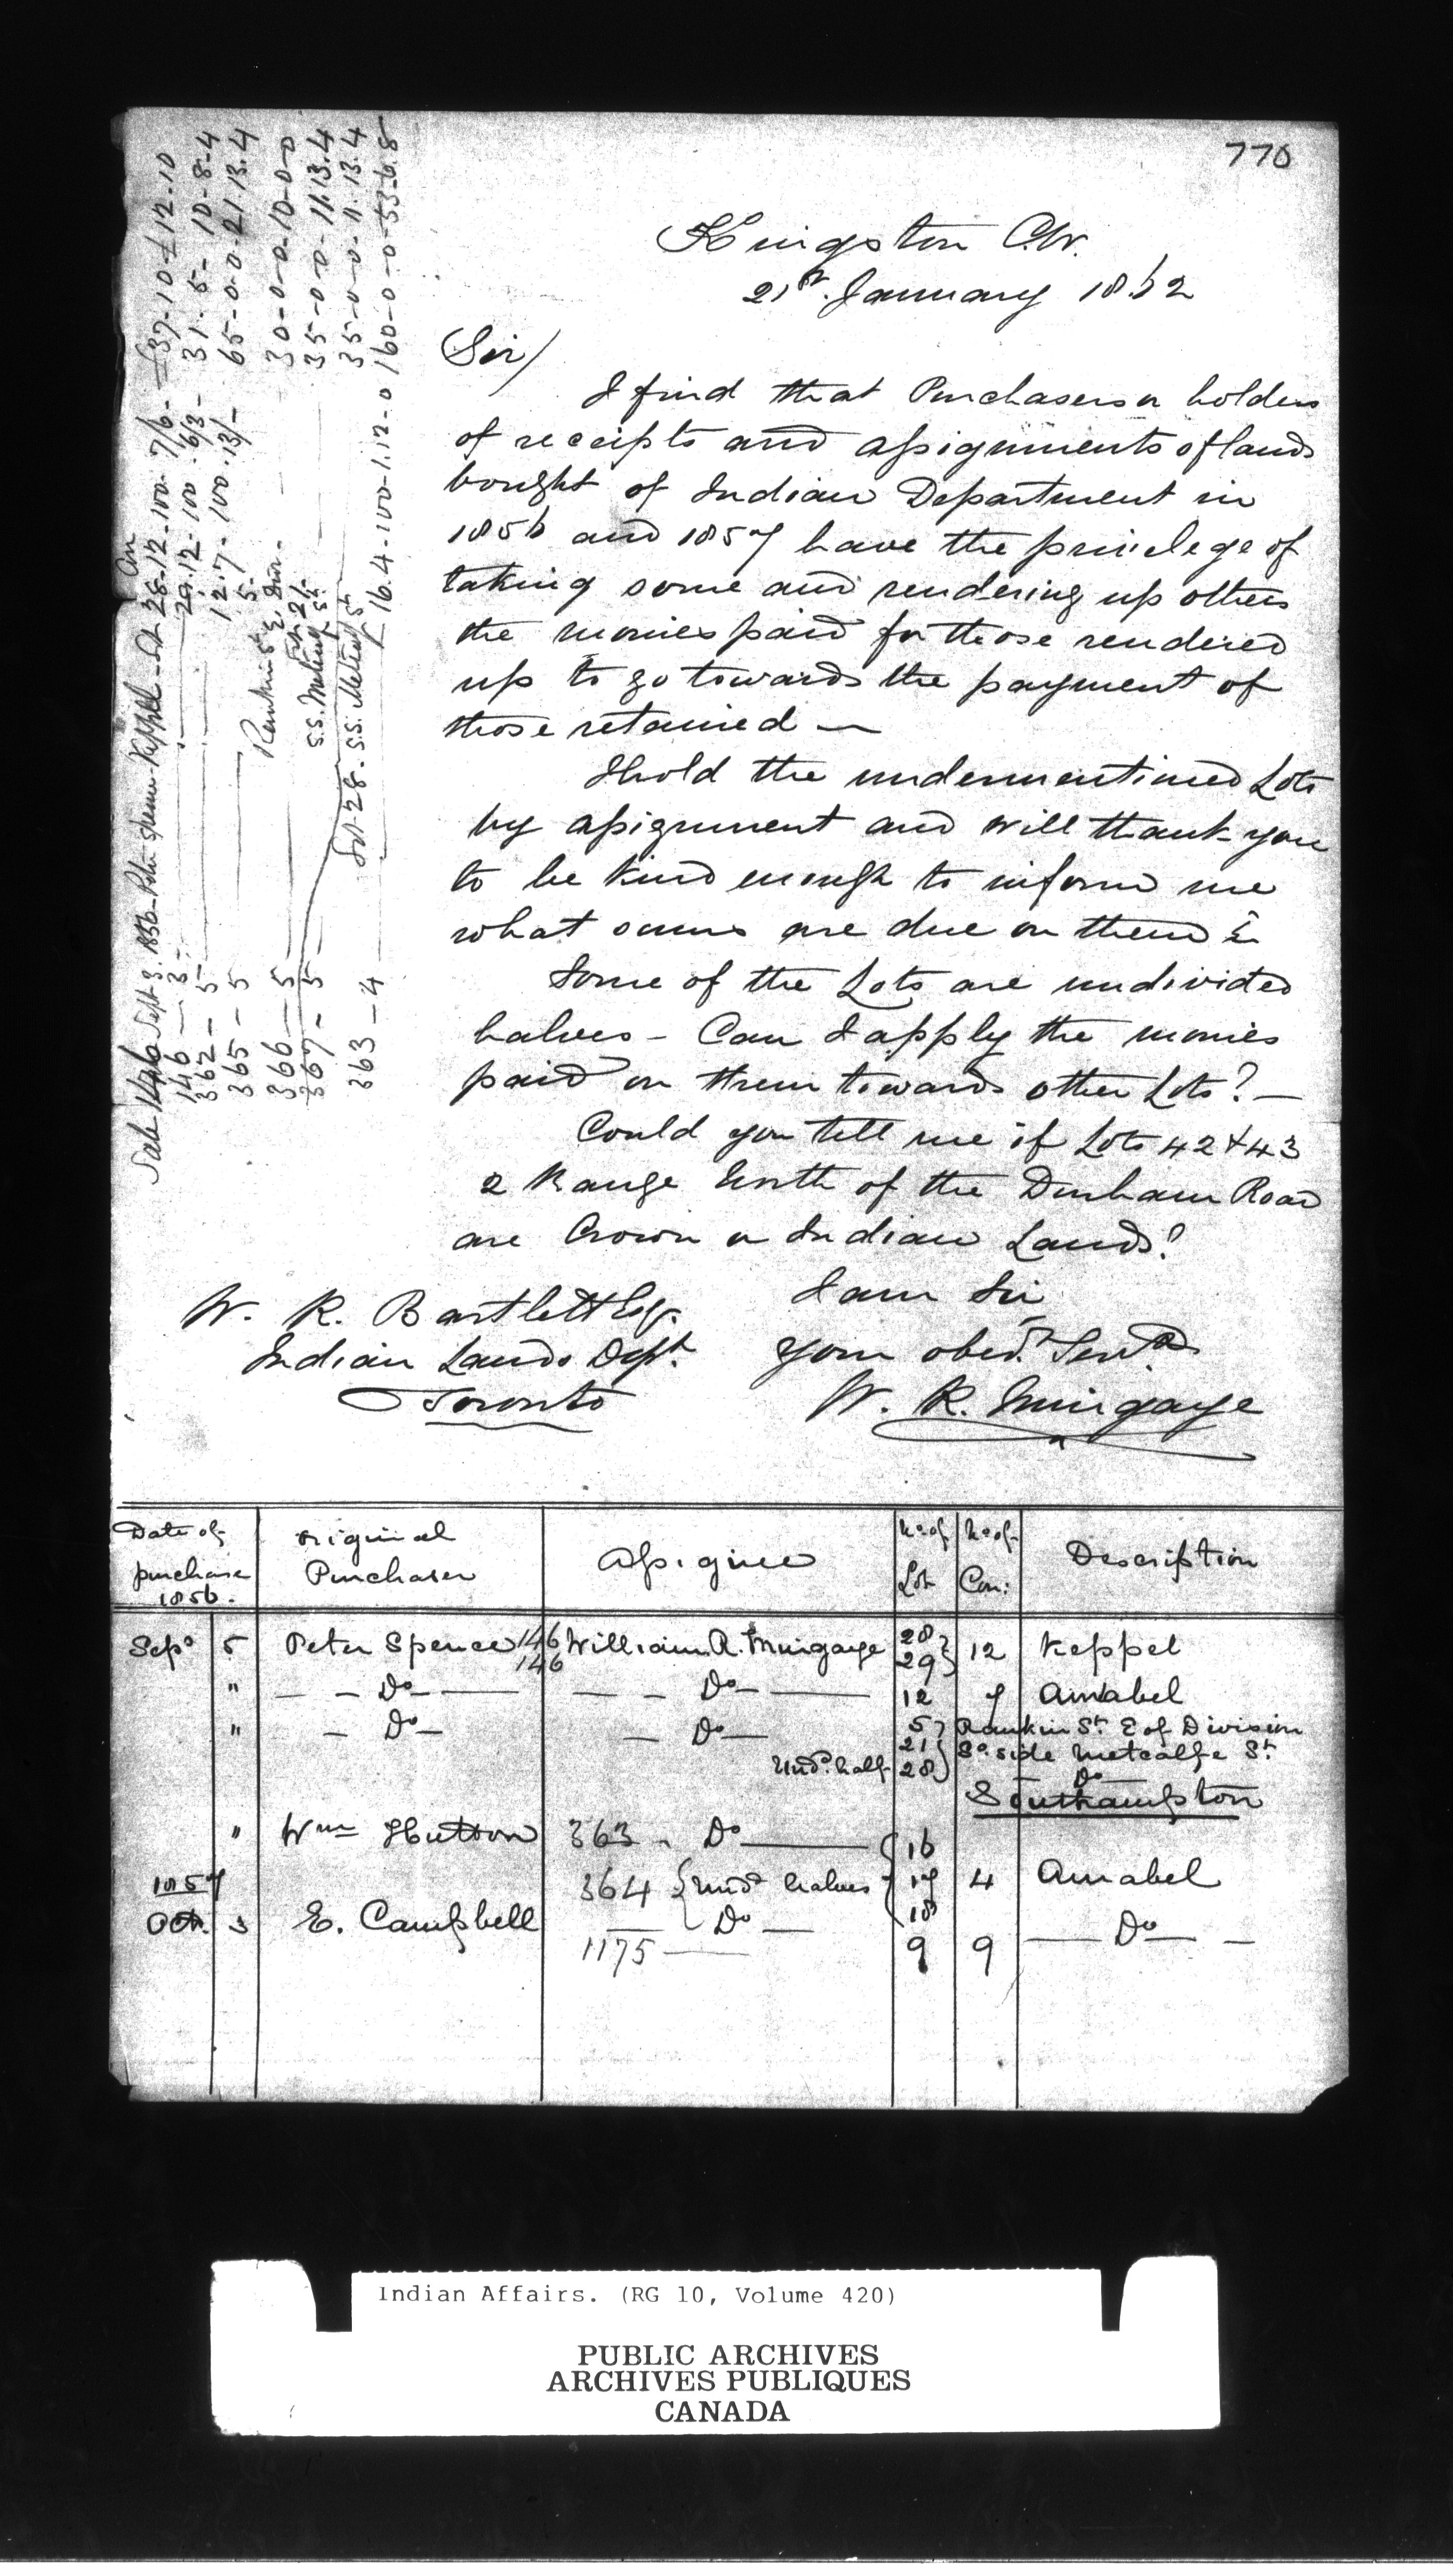 770
Kingston C.W.
21st January 1862
Sir/
I find that Purchasers or holders
of receipts and assignments of lands
bought of Indian Department in
1856 and 1857 have the privelege of
taking some and rendering up others
the monies paid for those rendered
up to go towards the payment of
those retained —
I hold the undermentioned Lots
by assignment and will thank you
to be kind enough to inform me
what sums are due on them &
Some of the Lots are undivided
halves - Can I apply the monies
paid on them towards other Lots? —
Could you tell me if Lots 42 & 43
2 Range North of the Durham Road
are Crown or Indian Lands?
I am Sir
Your obedt. Servt.
W. R. Mingaye
W. R. Bartlett Esq.
Indian Lands Dept.
Toronto
Sale Sept 3. 1856 - Peter Spence Keppel - Lot 28-12-100-7/6-£37-10-£12-10
146 - 3 29-12-100-6/3-31-5-10-8-4
362 - 5 12-7-100-13/-65-0-0-21-13-4
365 - 5 5-
Rankin St. E. Div. 30-0-0-10-0-0
366 - 5 21 S.S. Metcalf St. 35-0-0-11-13-4
367 - 5
Lot 28. S.S. Metcalf St 35-0-0-11-13-4
363 - 4 16-4-100-1.12-0 160-0-0-53-6-8
Date of purchase 1856. | Original Purchaser | Assignee | No. of Lot | No. of Con: | Description
Sepr 5 Peter Spence 146 William R. Mingaye 28 12 Keppel
146 29
" — Do — — Do — 12 7 Amabel
" — Do — — Do — 5 Rankin St. E of Division
21 So. side Metcalfe St.
Undd. half 28 Do
Southampton
" Wm Hutton 363 - Do — 16
364 Undd halves 17 4 Amabel
1857
Oct. 5 E. Campbell — Do — 18
1175 — 9 9 — Do —
Indian Affairs. (RG 10, Volume 420)
PUBLIC ARCHIVES
ARCHIVES PUBLIQUES
CANADA